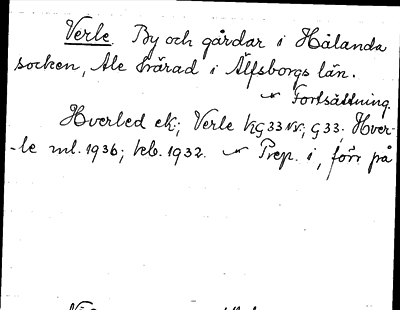 Verle. By och gårdar i Hålanda
socken, Ale härad i Älfsborgs län.
Fortsättning.
Hverled ek; Verle KG 33 NV; G 33; Hver-
-le ml. 1936; keb. 1932. Prep. i, förr på